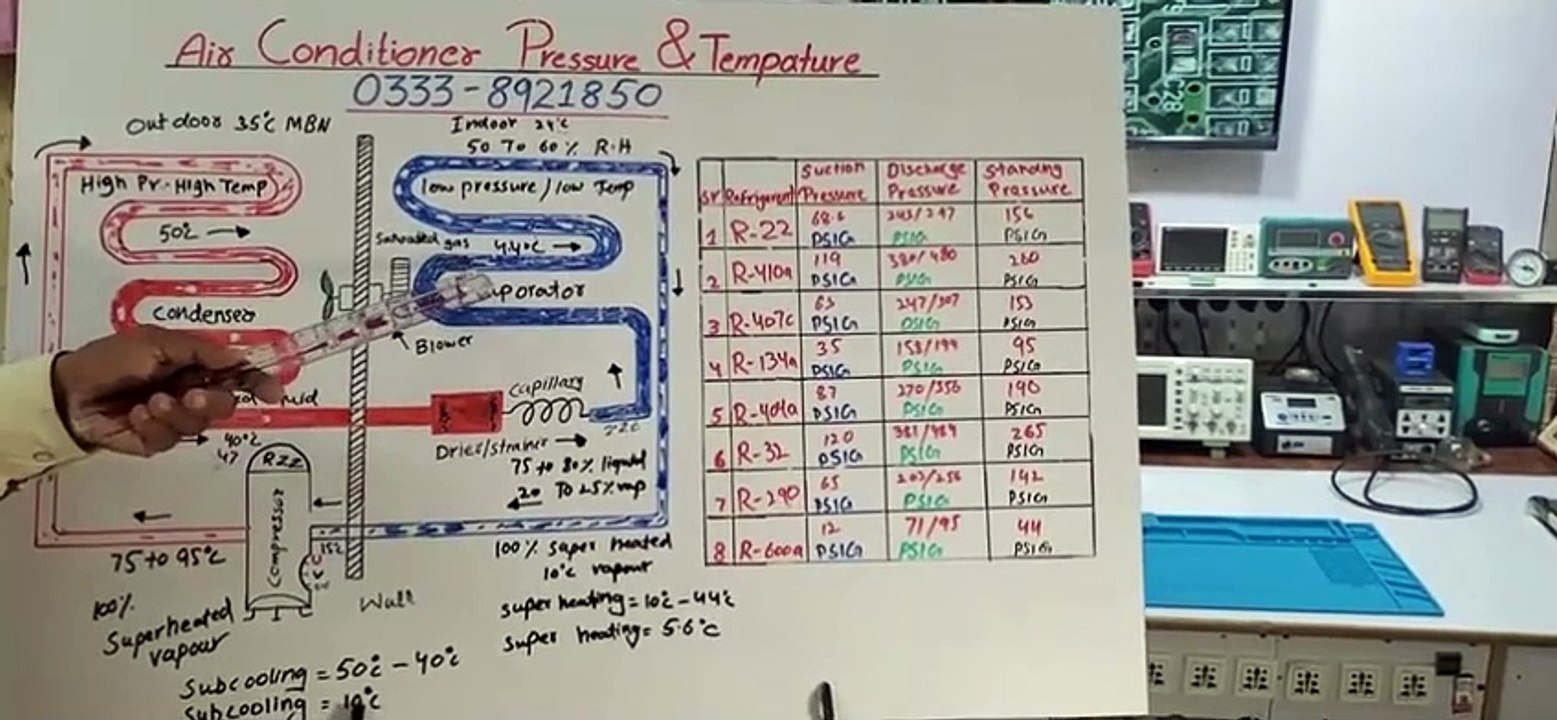 Air Conditioner Pressure & Tempature
0333-8921850
Outdoor 35°c MBN
Indoor 24°c
50 To 60% R.H
High Pr. High Temp
low pressure / low Temp
50°c
Saturated gas 4.4°c
Condenser
porator
Blower
Capillary
40°c
47
Drier/strainer
75 to 80% liquid
20 To 25% vap
R22
Compressor
75 to 95°c
100%
Superheated
vapour
Wall
100% Saper heated
10°c vapour
super heating = 10°c - 44°c
super heating = 5.6°c
Subcooling = 50°c - 40°c
Subcooling = 10°c
Sr Refrigerant Suction Pressure Discharge Pressure Standing Pressure
1 R-22 68.6 PSIG 243/297 PSIG 156 PSIG
2 R-410a 119 PSIG 380/480 PSIG 260 PSIG
3 R-407c 63 PSIG 247/307 PSIG 153 PSIG
4 R-134a 35 PSIG 158/199 PSIG 95 PSIG
5 R-404a 87 PSIG 270/356 PSIG 190 PSIG
6 R-32 120 PSIG 381/489 PSIG 265 PSIG
7 R-290 65 PSIG 203/256 PSIG 142 PSIG
8 R-600a 12 PSIG 71/95 PSIG 44 PSIG
C28